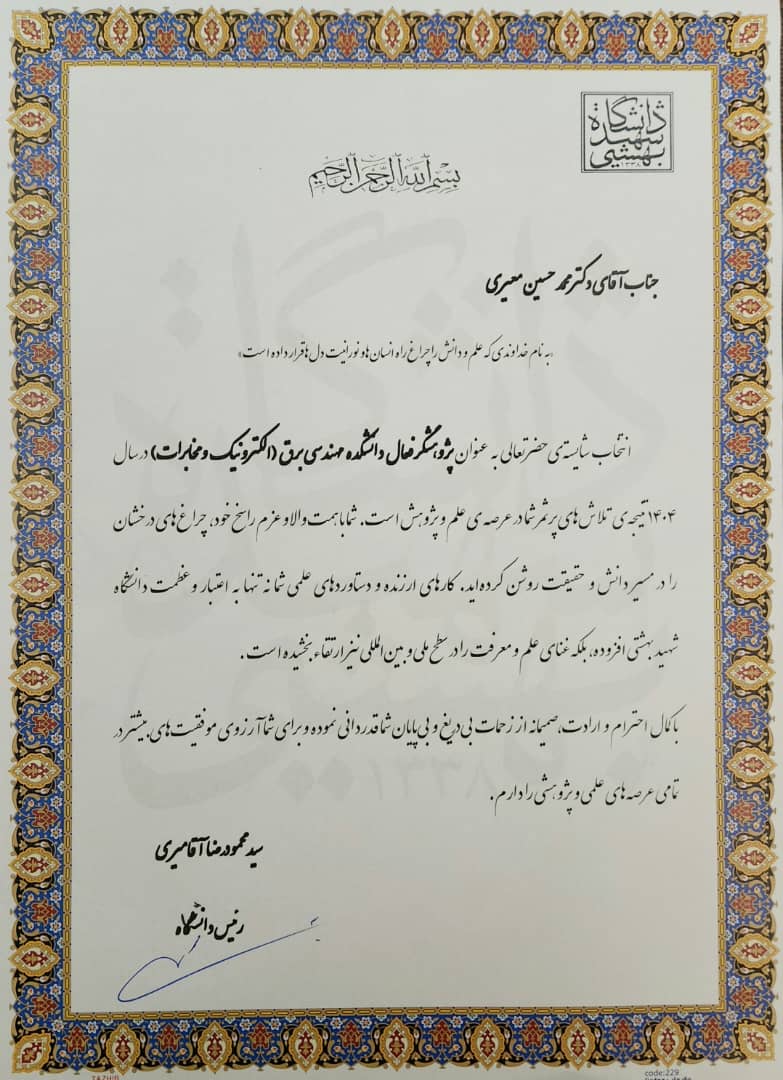 دانشگاه
شهید
بهشتی
۱۳۳۸
بسم الله الرحمن الرحیم
جناب آقای دکتر محمد حسین معیری
«به نام خداوندی که علم و دانش را چراغ راه انسان ها و نورانیت دل ها قرار داده است»
انتخاب شایسته‌ی حضرتعالی به عنوان پژوهشگر فعال دانشکده مهندسی برق (الکترونیک و مخابرات) در سال
۱۴۰۴ نتیجه‌ی تلاش های پر ثمر شما در عرصه‌ی علم و پژوهش است. شما با همت والا و عزم راسخ خود، چراغ های درخشان
را در مسیر دانش و حقیقت روشن کرده‌اید. کارهای ارزنده و دستاوردهای علمی شما نه تنها به اعتبار و عظمت دانشگاه
شهید بهشتی افزوده، بلکه غنای علم و معرفت را در سطح ملی و بین المللی نیز ارتقاء بخشیده است.
با کمال احترام و ارادت، صمیمانه از زحمات بی دریغ و بی پایان شما قدردانی نموده و برای شما آرزوی موفقیت های بیشتر در
تمامی عرصه های علمی و پژوهشی را دارم.
سید محمودرضا آقامیری
رئیس دانشگاه
TAZHIB
code:229